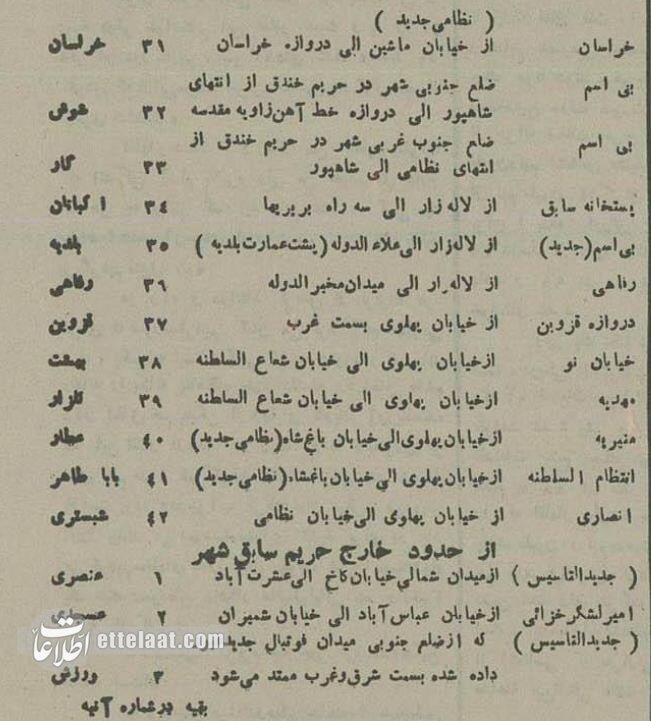 ( نظامی جدید )
خراسان از خیابان ماشین الی دروازه خراسان ۳۱ خراسان
بی اسم ضلع جنوبی شهر در حریم خندق از انتهای
شاهپور الی دروازه خط آهن زاویه مقدسه ۳۲ شوش
بی اسم ضلع جنوب غربی شهر در حریم خندق از
انتهای نظامی الی شاهپور ۳۳ گار
پستخانه سابق از لاله زار الی سه راه بربریها ۳۴ اکباتان
بی اسم (جدید) از لاله زار الی علاءالدوله (پشت عمارت بلدیه) ۳۵ بلدیه
رفاهی از لاله زار الی میدان مخبرالدوله ۳۶ رفاهی
دروازه قزوین از خیابان پهلوی بسمت غرب ۳۷ قزوین
خیابان نو از خیابان پهلوی الی خیابان شعاع السلطنه ۳۸ بهشت
مهدیه از خیابان پهلوی الی خیابان شعاع السلطنه ۳۹ گلزار
منیریه از خیابان پهلوی الی خیابان باغ شاه (نظامی جدید) ۴۰ عطار
انتظام السلطنه از خیابان پهلوی الی خیابان باغشاه (نظامی جدید) ۴۱ بابا طاهر
انصاری از خیابان پهلوی الی خیابان نظامی ۴۲ شبستری
از حدود خارج حریم سابق شهر
( جدیدالتاسیس ) از میدان شمالی خیابان کاخ الی عشرت آباد ۱ عنصری
امیر لشگر خزائی از خیابان عباس آباد الی خیابان شمیران ۲ عسجدی
( جدیدالتاسیس ) که از ضلع جنوبی میدان فوتبال جدید
داده شده بسمت شرق و غرب ممتد می شود ۳ ورزش
بقیه در شماره آتیه
اطلاعات ettelaat.com